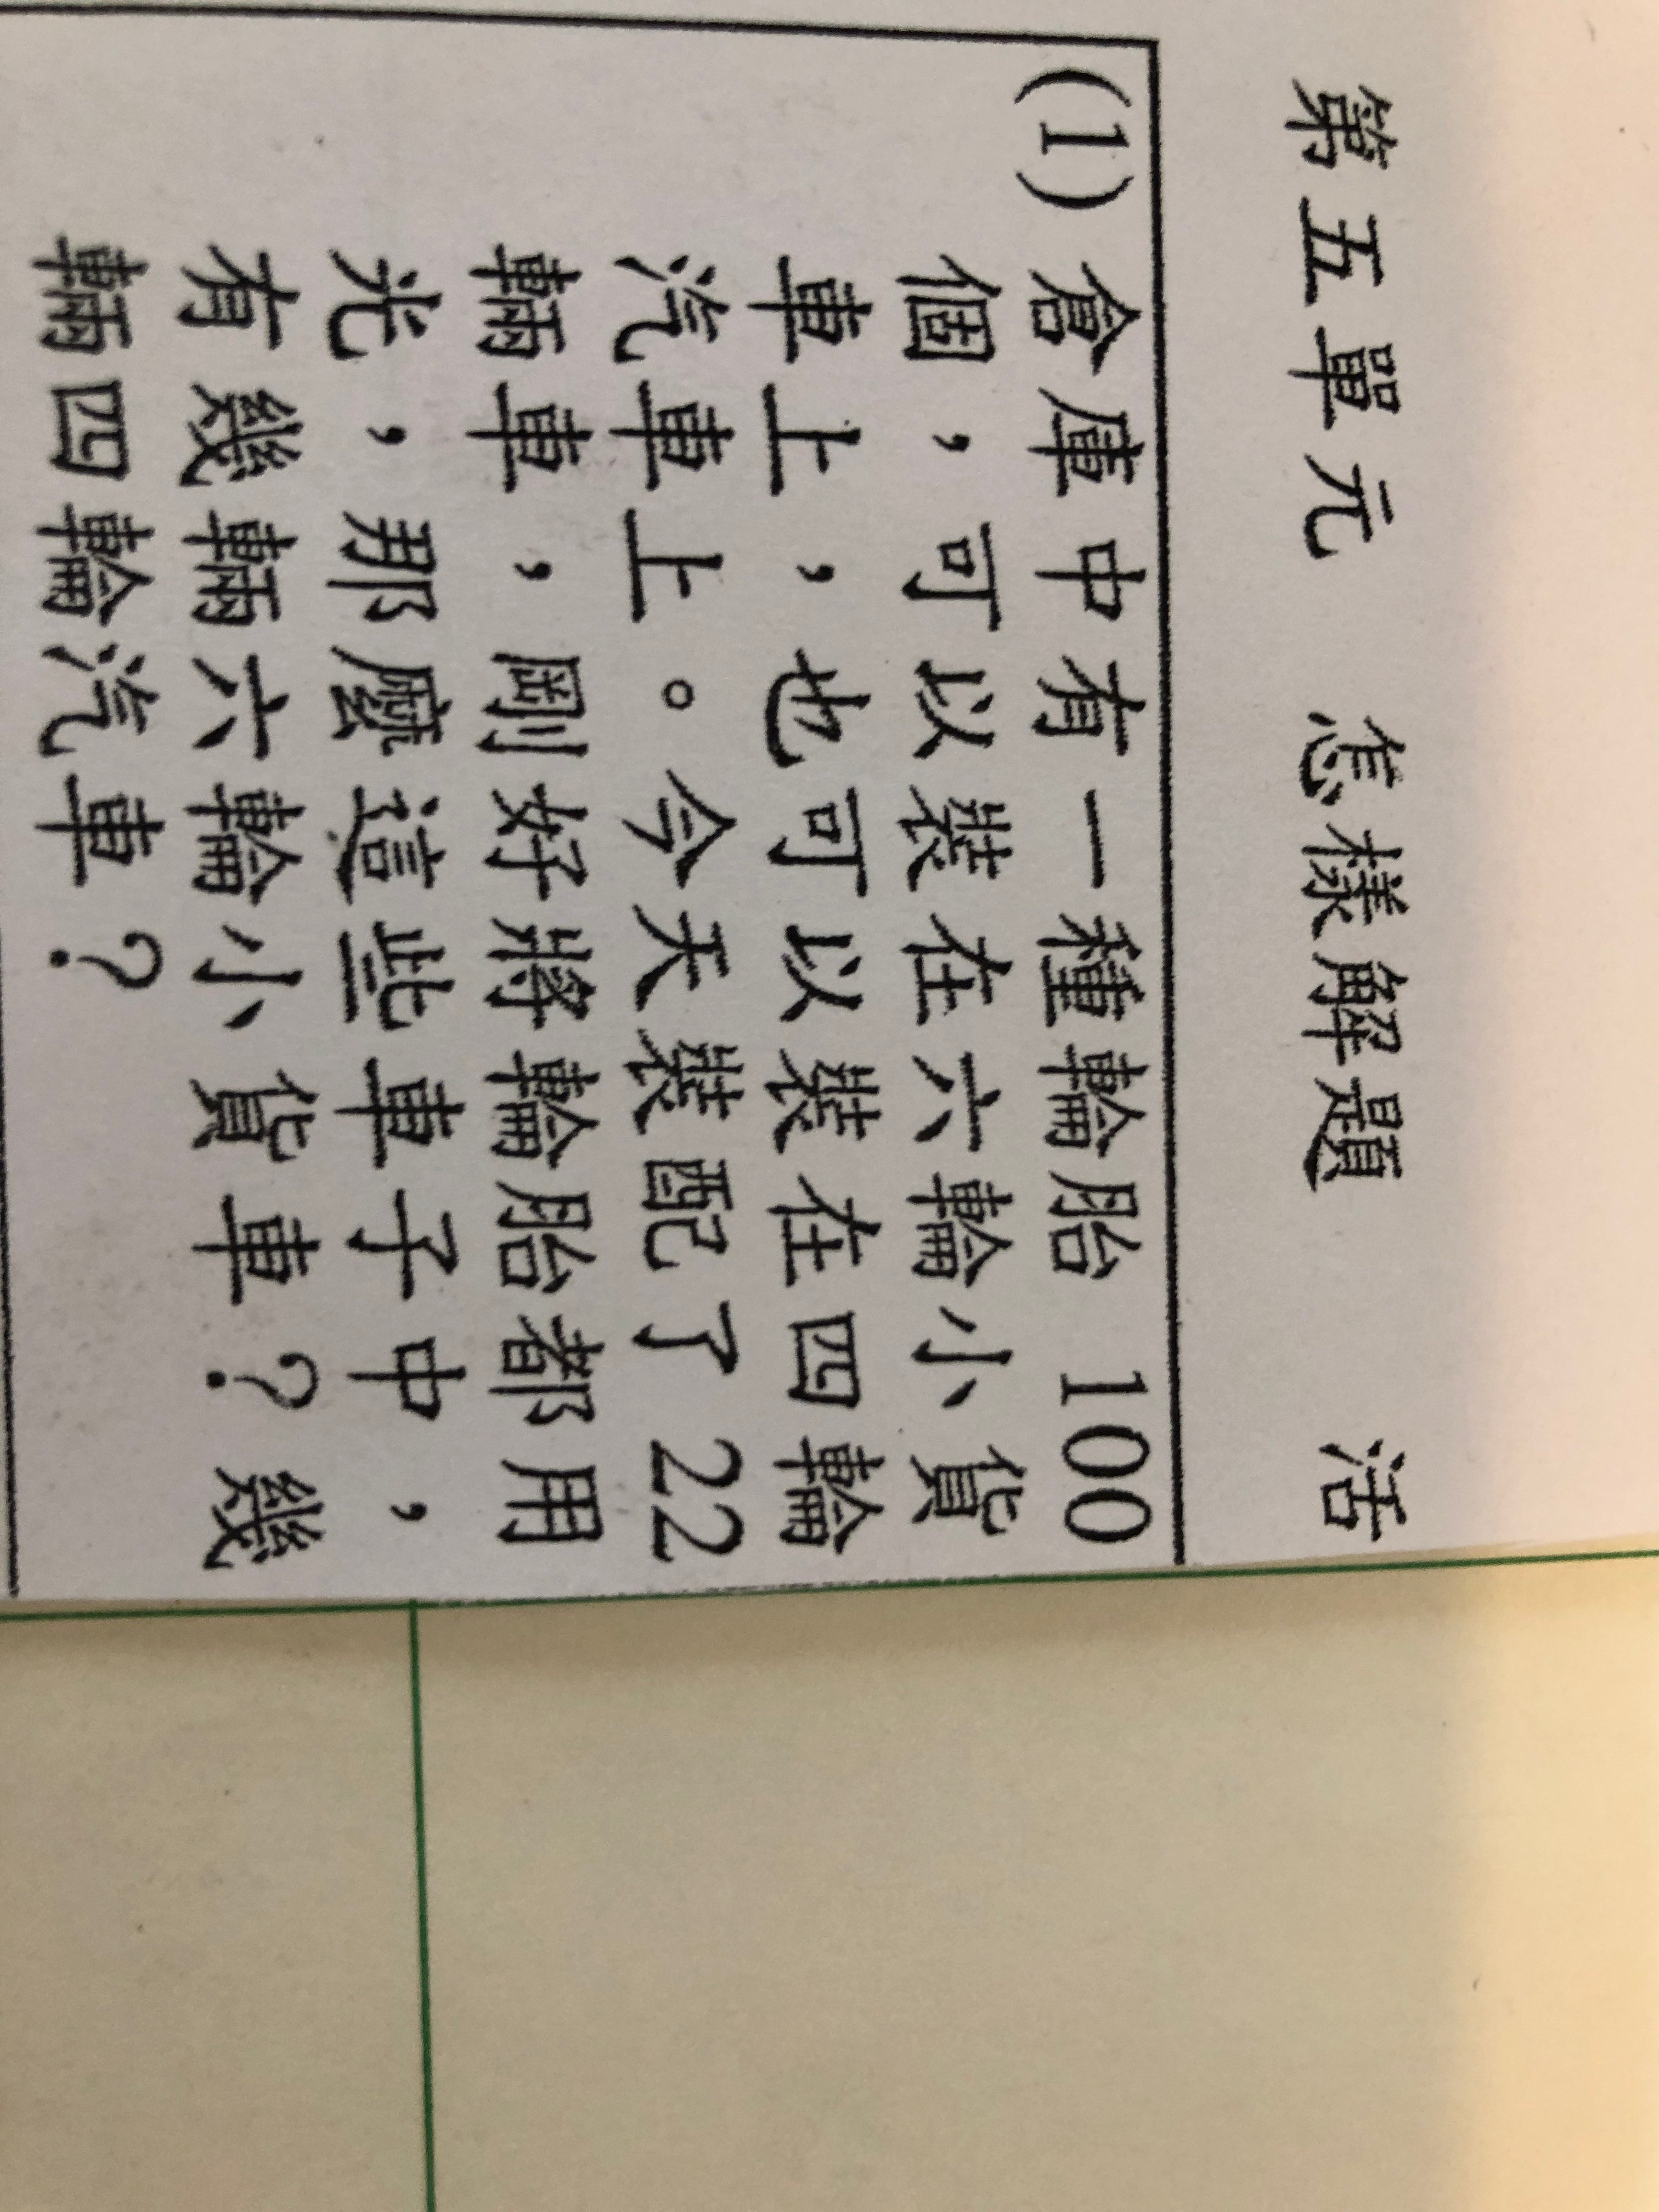 第五單元 怎樣解題 活
(1) 倉庫中有一種輪胎 100
個，可以裝在六輪小貨
車上，也可以裝在四輪
汽車上。今天裝配了 22
輛車，剛好將輪胎都用
光，那麼這些車子中，
有幾輛六輪小貨車？幾
輛四輪汽車？